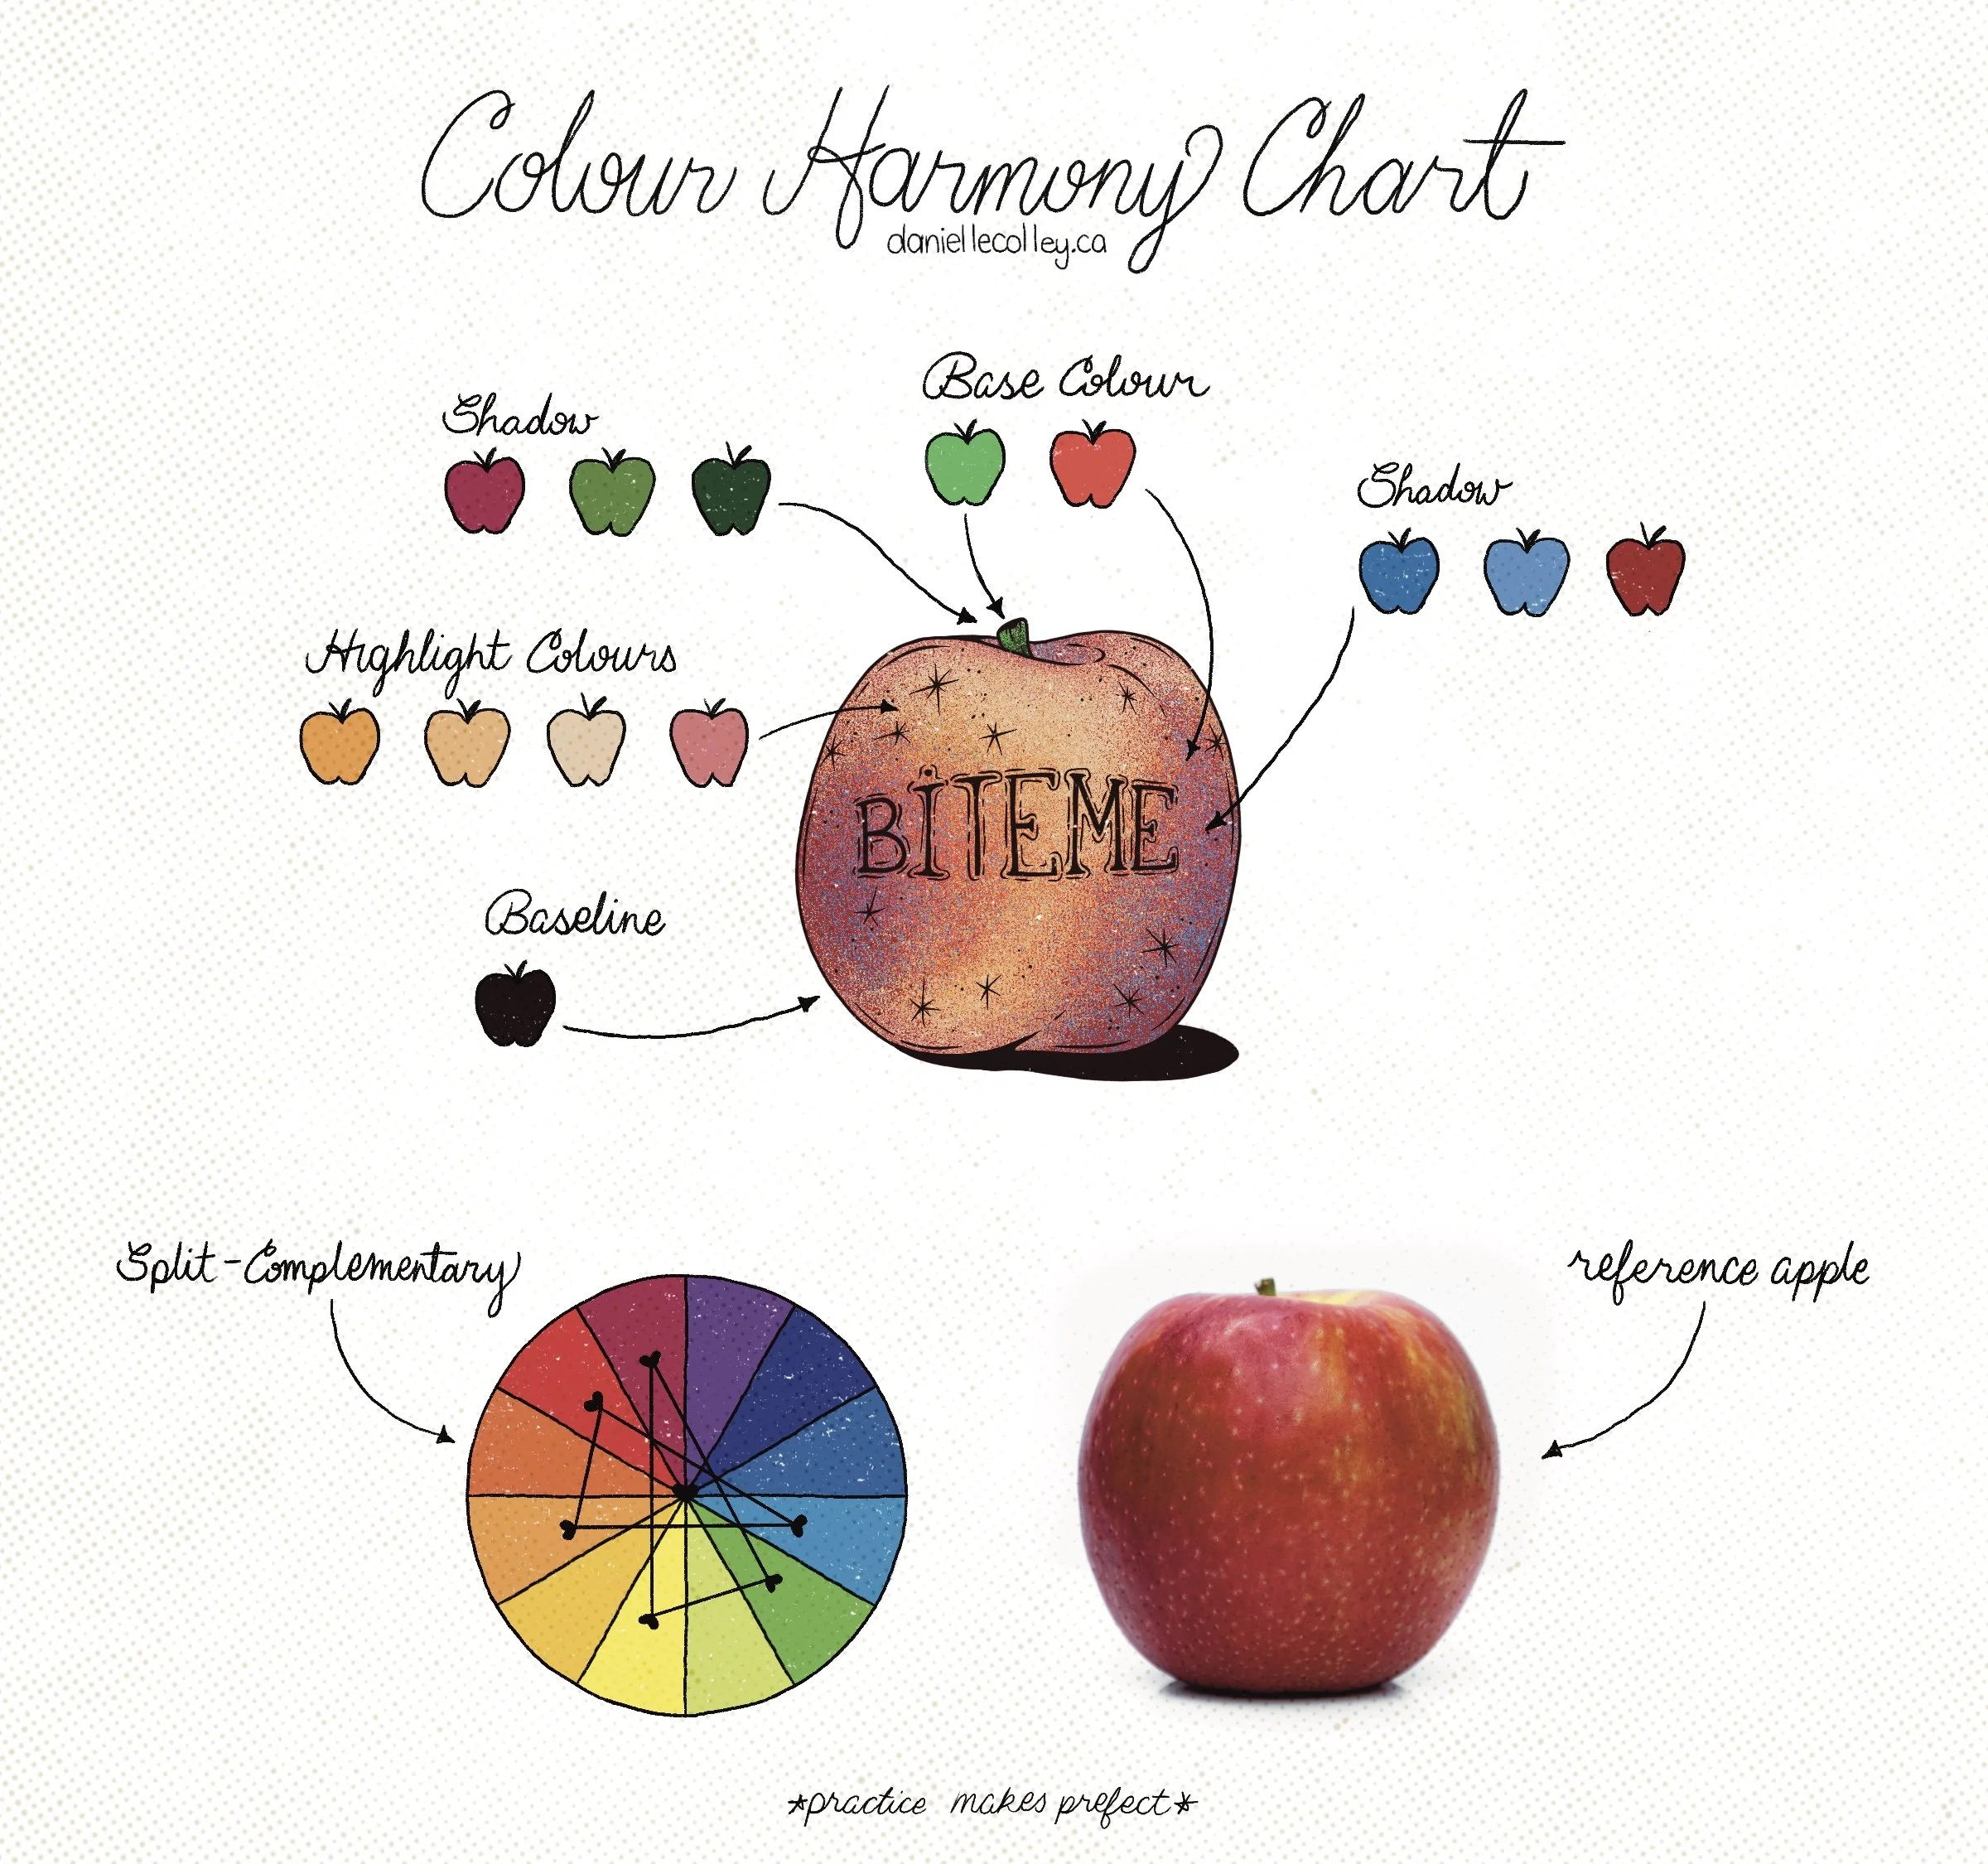 Colour Harmony Chart
daniellecolley.ca
Base Colour
Shadow
Shadow
Highlight Colours
BITEME
Baseline
Split-Complementary
reference apple
*practice makes prefect*